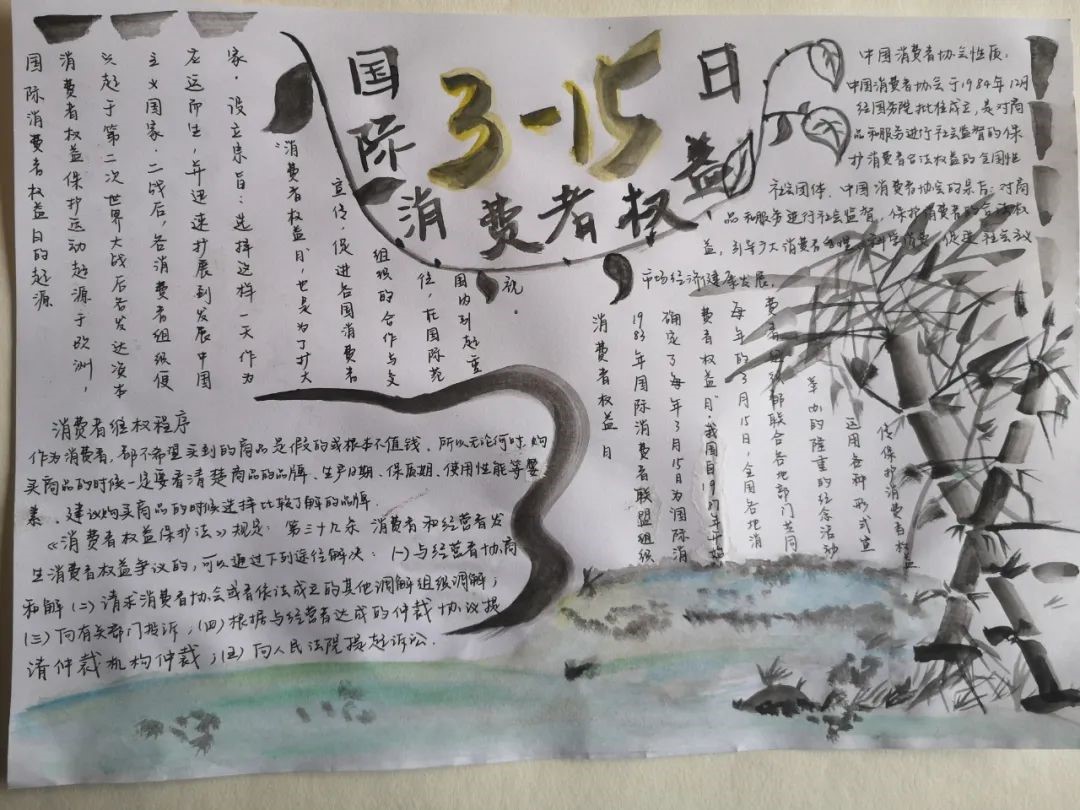 国际
3-15
消费者权益日
国际消费者权益日的起源
消费者权益保护运动起源于欧洲，
兴起于第二次世界大战后各发达资本
主义国家。二战后，各消费者组织便
应运而生，并迅速扩展到发展中国
家。设立宗旨：选择这样一天作为
“消费者权益日，也是为了扩大
宣传，促进各国消费者
组织的合作与交
往，在国际范
围内引起重
视
中国消费者协会性质：
中国消费者协会于1984年12月
经国务院批准成立，是对商
品和服务进行社会监督的保
护消费者合法权益的全国性
社会团体。中国消费者协会的宗旨：对商
品和服务进行社会监督，保护消费者的合法权
益，引导广大消费者合理、科学消费，促进社会主义
市场经济健康发展。
消费者权益日
1983年国际消费者联盟组织
确定了每年3月15日为国际消
费者权益日。我国自19年开始
每年的3月15日，全国各地消
费者组织都联合各地部门共同
举办的隆重的纪念活动
运用各种形式宣
传保护消费者权益
消费者维权程序
作为消费者，都不希望买到的商品是假的或根本不值钱，所以无论何时，购
买商品的时候一定要看清楚商品的品牌、生产日期、保质期、使用性能等要
素、建议购买商品的时候选择比较了解的品牌.
《消费者权益保护法》规定：第三十九条 消费者和经营者发
生消费者权益争议的，可以通过下列途径解决：(一)与经营者协商
和解(二)请求消费者协会或者依法成立的其他调解组织调解；
(三)向有关部门投诉；(四)根据与经营者达成的仲裁协议提
请仲裁机构仲裁；(五)向人民法院提起诉讼.